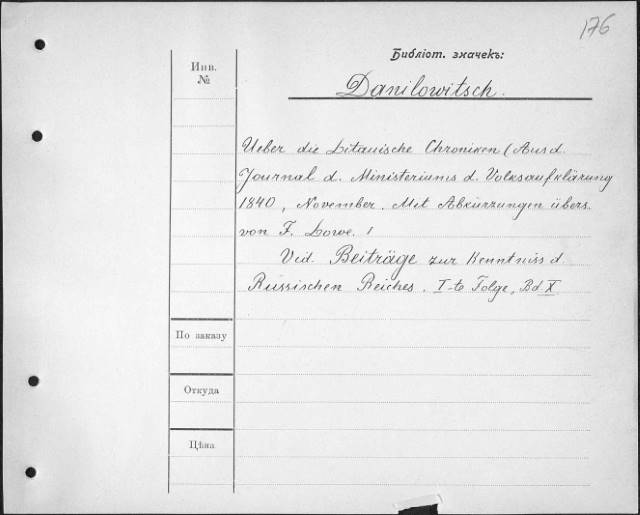 176
Библіот. значекъ:
Инв.
№
Danilowitsch.
Ueber die Litauische Chroniken (Aus d.
Journal d. Ministeriums d. Volksaufklärung
1840, November. Mit Abkürzungen übers.
von F. Löwe.)
Vid. Beiträge zur Kenntniss d.
Russischen Reiches. I-te Folge, Bd X
По заказу
Откуда
Цѣна